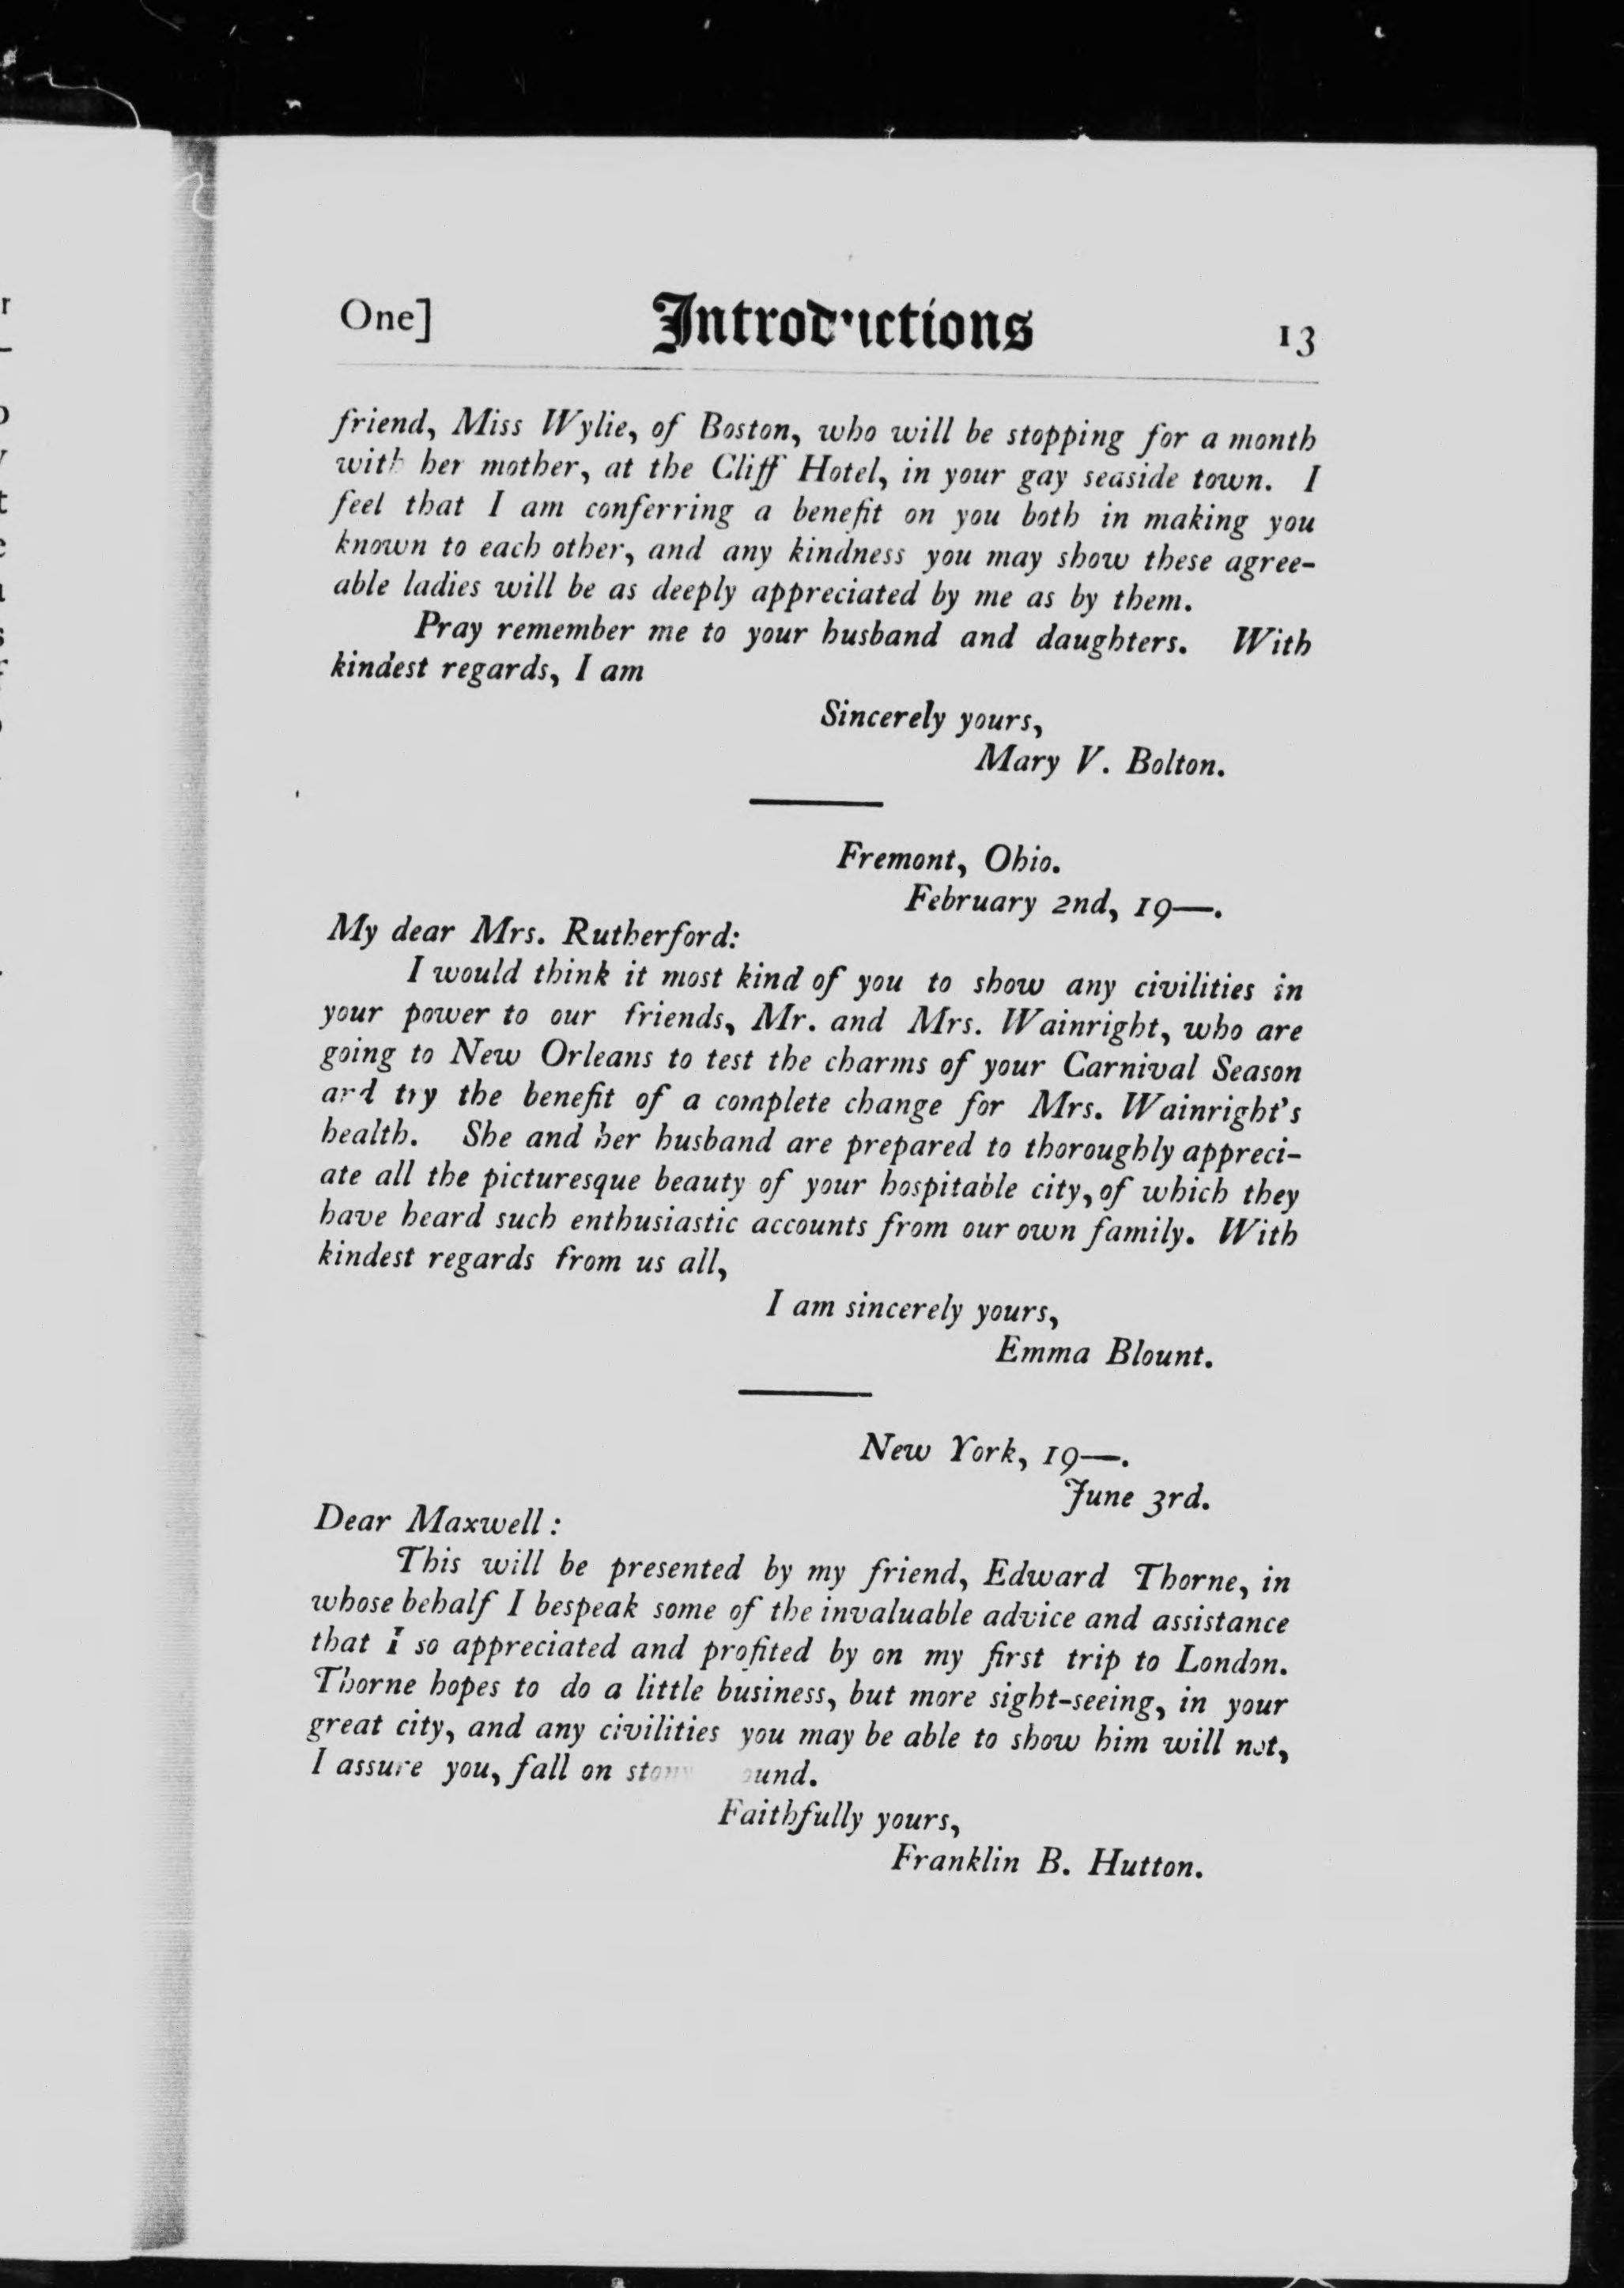 One] Introductions 13
friend, Miss Wylie, of Boston, who will be stopping for a month
with her mother, at the Cliff Hotel, in your gay seaside town. I
feel that I am conferring a benefit on you both in making you
known to each other, and any kindness you may show these agree-
able ladies will be as deeply appreciated by me as by them.
Pray remember me to your husband and daughters. With
kindest regards, I am
Sincerely yours,
Mary V. Bolton.
Fremont, Ohio.
February 2nd, 19—.
My dear Mrs. Rutherford:
I would think it most kind of you to show any civilities in
your power to our friends, Mr. and Mrs. Wainright, who are
going to New Orleans to test the charms of your Carnival Season
and try the benefit of a complete change for Mrs. Wainright's
health. She and her husband are prepared to thoroughly appreci-
ate all the picturesque beauty of your hospitable city, of which they
have heard such enthusiastic accounts from our own family. With
kindest regards from us all,
I am sincerely yours,
Emma Blount.
New York, 19—.
June 3rd.
Dear Maxwell:
This will be presented by my friend, Edward Thorne, in
whose behalf I bespeak some of the invaluable advice and assistance
that I so appreciated and profited by on my first trip to London.
Thorne hopes to do a little business, but more sight-seeing, in your
great city, and any civilities you may be able to show him will not,
I assure you, fall on stony
Faithfully yours,
Franklin B. Hutton.